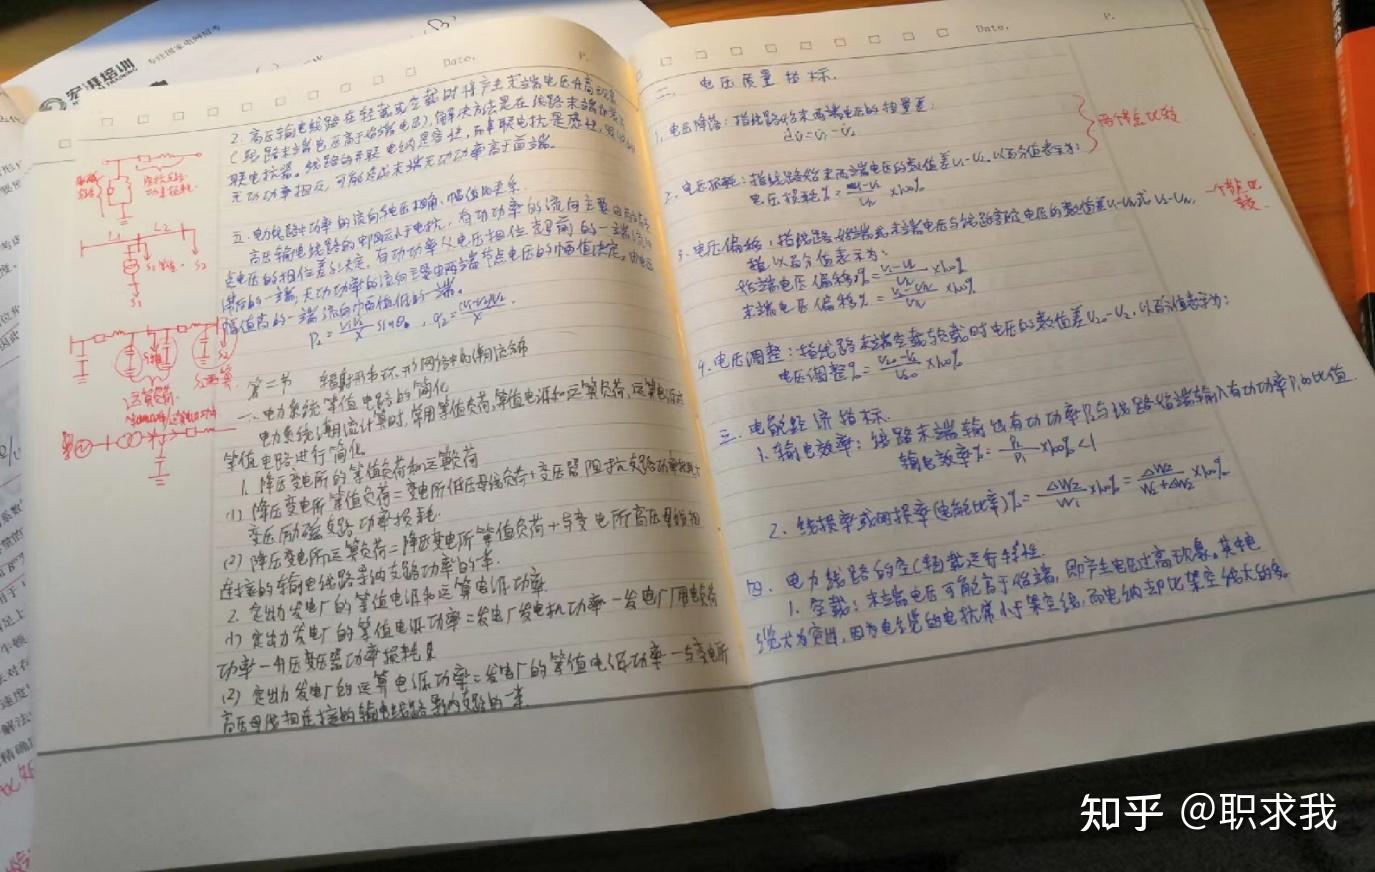 宏湃培训
专注国家电网招考
Date.
P.
2. 高压输电线路在轻载或空载时将产生末端电压升高现象
(线路末端电压高于始端电压),解决方法是在线路末端
联电抗器。线路的并联电纳是容性,而并联电抗是感性,
无功功率相反,可能造成末端无功功率高于首端。
五. 电力线路中功率的流向与电压相角、幅值的关系
高压输电线路的电阻远小于电抗,有功功率的流向主要由两端节
点电压的相位差决定,有功功率从电压相位超前的一端流向
滞后的一端;无功功率的流向主要由两端节点电压的幅值决定,由电压
幅值高的一端流向幅值低的一端。
第二节 辐射形和环形网络中的潮流分布
一. 电力系统等值电路的简化
电力系统潮流计算时,常用等值负荷,等值电源和运算负荷,运算电源对
等值电路进行简化
1. 降压变电所的等值负荷和运算负荷
(1) 降压变电所等值负荷=变电所低压母线负荷+变压器阻抗支路功率损耗+
变压励磁支路功率损耗.
(2) 降压变电所运算负荷=降压变电所等值负荷+与变电所高压母线相
连接的输电线路导纳支路功率的一半.
2. 定出力发电厂的等值电源和运算电源功率
(1) 定出力发电厂的等值电源功率=发电厂发电机功率-发电厂厂用电负荷
功率-升压变压器功率损耗
(2) 定出力发电厂的运算电源功率=发电厂的等值电源功率-与变电所
高压母线相连接的输电线路导纳支路的一半.
L1
L2
S2
S1
运算负荷
Date.
P.
二. 电压质量指标.
1. 电压降落:指线路始末两端电压的相量差:
dU̇=U̇₁-U̇₂
2. 电压损耗:指线路始末两端电压的数值差U₁-U₂,以百分值表示为:
电压损耗%=(U₁-U₂)/U_N×100%
两节点比较
3. 电压偏移:指线路始端或末端电压与线路额定电压的数值差U₁-U_N或U₂-U_N,
以百分值表示为:
始端电压偏移%=(U₁-U_N)/U_N×100%
末端电压偏移%=(U₂-U_N)/U_N×100%
一个节点比
较.
4. 电压调整:指线路末端空载与负载时电压的数值差U₂₀-U₂,以百分值表示为:
电压调整%=(U₂₀-U₂)/U₂₀×100%
三. 电能经济指标.
1. 输电效率:线路末端输出有功功率P₂与线路始端输入有功功率P₁的比值.
输电效率%=P₂/P₁×100%<1
2. 线损率或网损率(电能比率)%=ΔWz/W₁×100%=ΔWz/(W₂+ΔWz)×100%
四. 电力线路的空(轻)载运行特性.
1. 空载:末端电压可能高于始端,即产生电压过高现象。其中电
缆尤为突出,因为电缆的电抗常小于架空线,而电纳却比架空线大的多。
知乎 @职求我